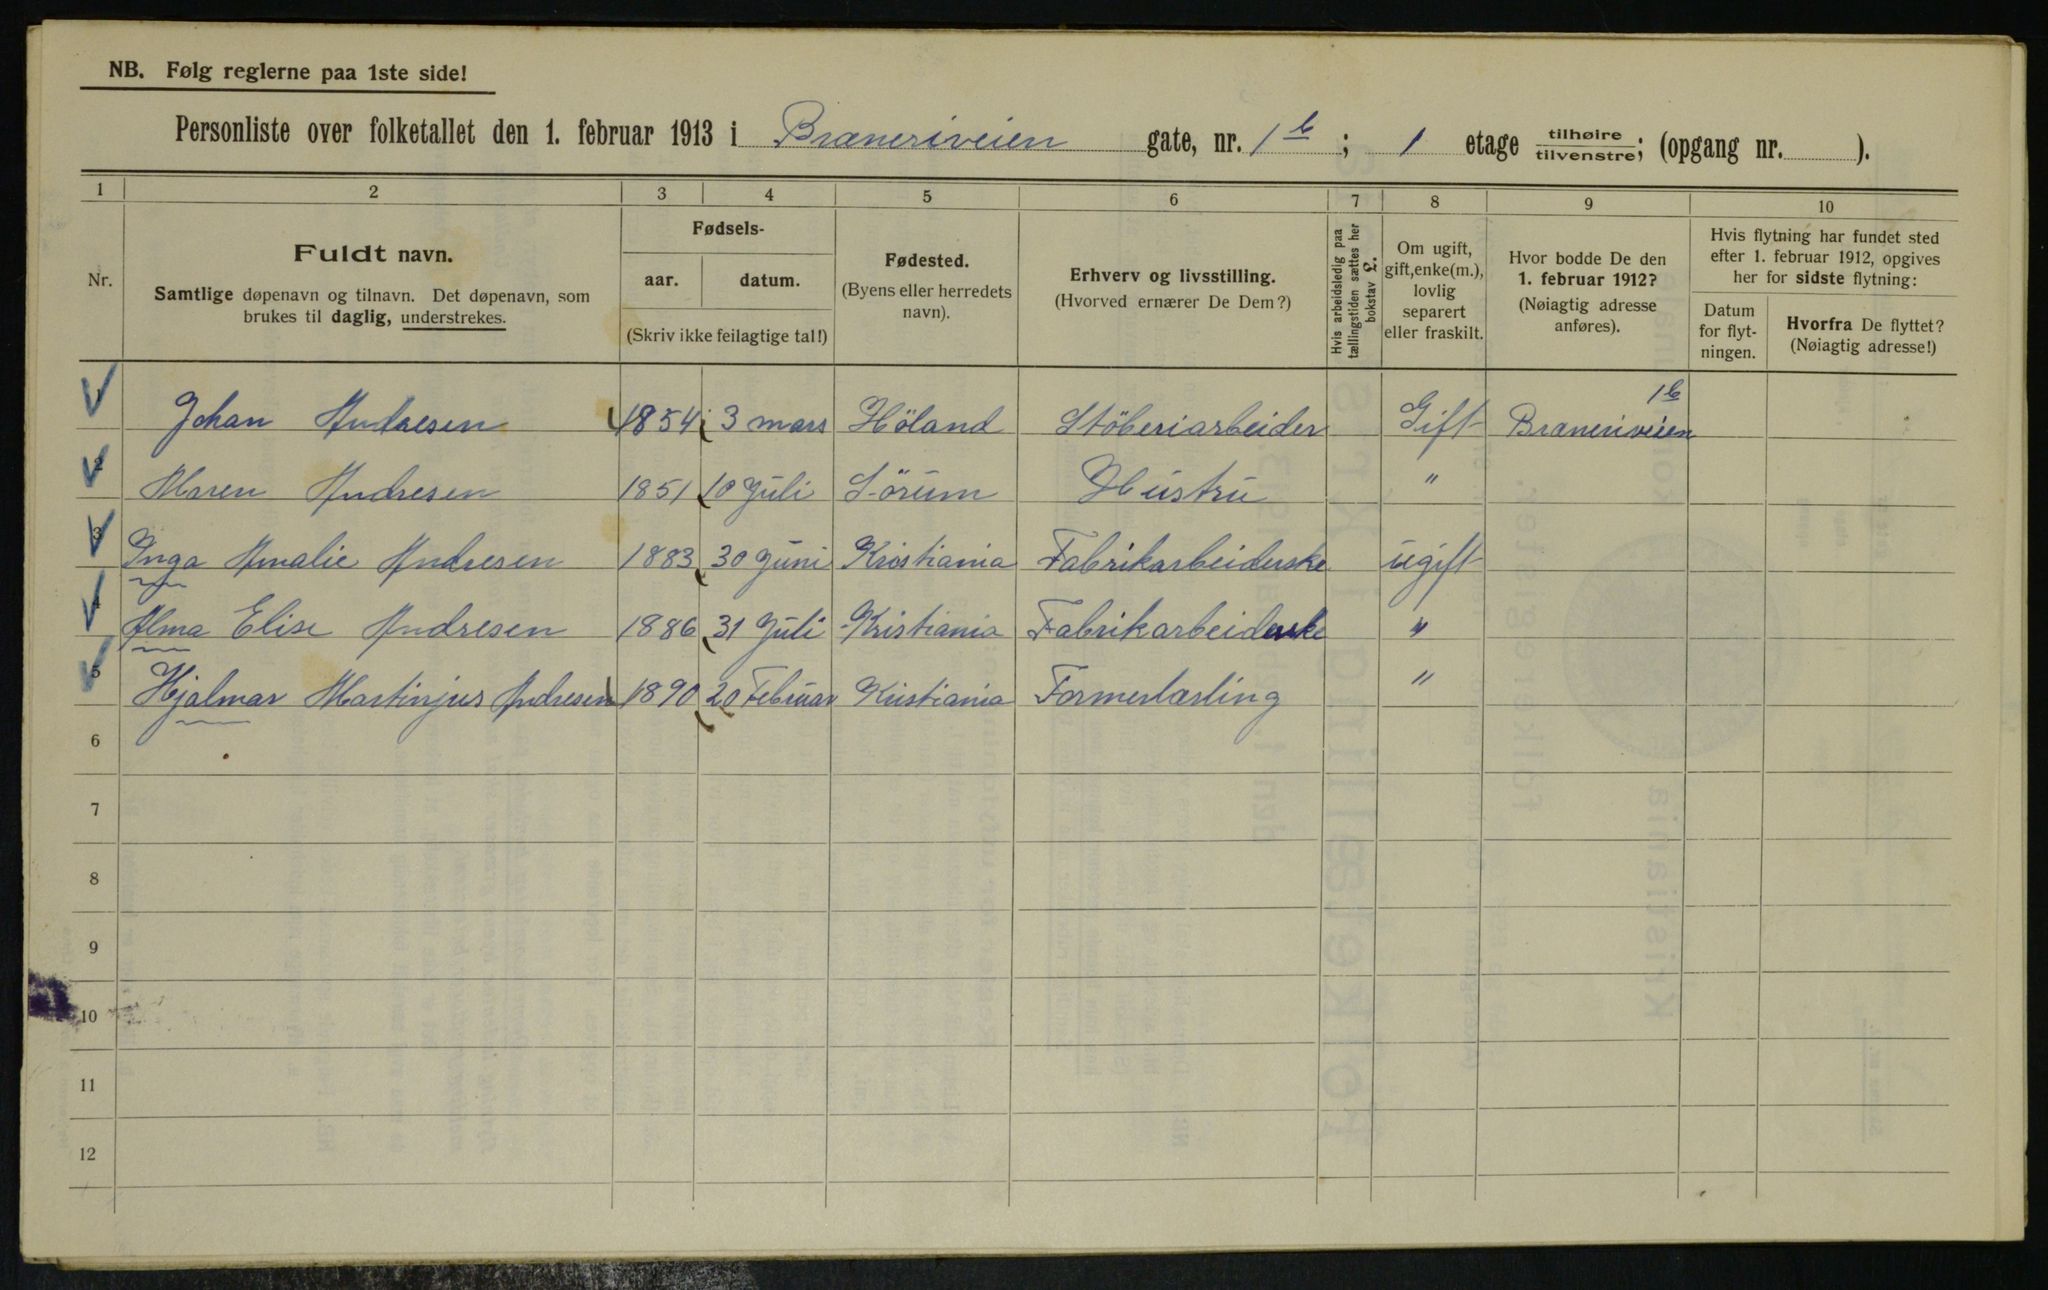 NB. Følg reglerne paa 1ste side!
Personliste over folketallet den 1. februar 1913 i Braneriveien gate, nr. 1b; 1 etage tilhøire/tilvenstre; (opgang nr. ).
1 2 3 4 5 6 7 8 9 10
Nr.
Fuldt navn.
Samtlige døpenavn og tilnavn. Det døpenavn, som
brukes til daglig, understrekes.
Fødsels-
aar. datum.
(Skriv ikke feilagtige tal!)
Fødested.
(Byens eller herredets
navn).
Erhverv og livsstilling.
(Hvorved ernærer De Dem?)
Hvis arbeidsledig paa
tællingstiden sættes her
bokstav £.
Om ugift,
gift, enke(m.),
lovlig
separert
eller fraskilt.
Hvor bodde De den
1. februar 1912?
(Nøiagtig adresse
anføres).
Hvis flytning har fundet sted
efter 1. februar 1912, opgives
her for sidste flytning:
Datum
for flyt-
ningen.
Hvorfra De flyttet?
(Nøiagtig adresse!)
1 Johan Andresen 1854 3 mars Höland Stöberiarbeider Gift Braneriveien 1b
2 Maren Andresen 1851 10 Juli Sörum Hustru "
3 Inga Amalie Andresen 1883 30 Juni Kristiania Fabrikarbeiderske ugift
4 Alma Elise Andresen 1886 31 Juli Kristiania Fabrikarbeiderske "
5 Hjalmar Martinjus Andresen 1890 20 Februar Kristiania Formerlærling "
6
7
8
9
10
11
12